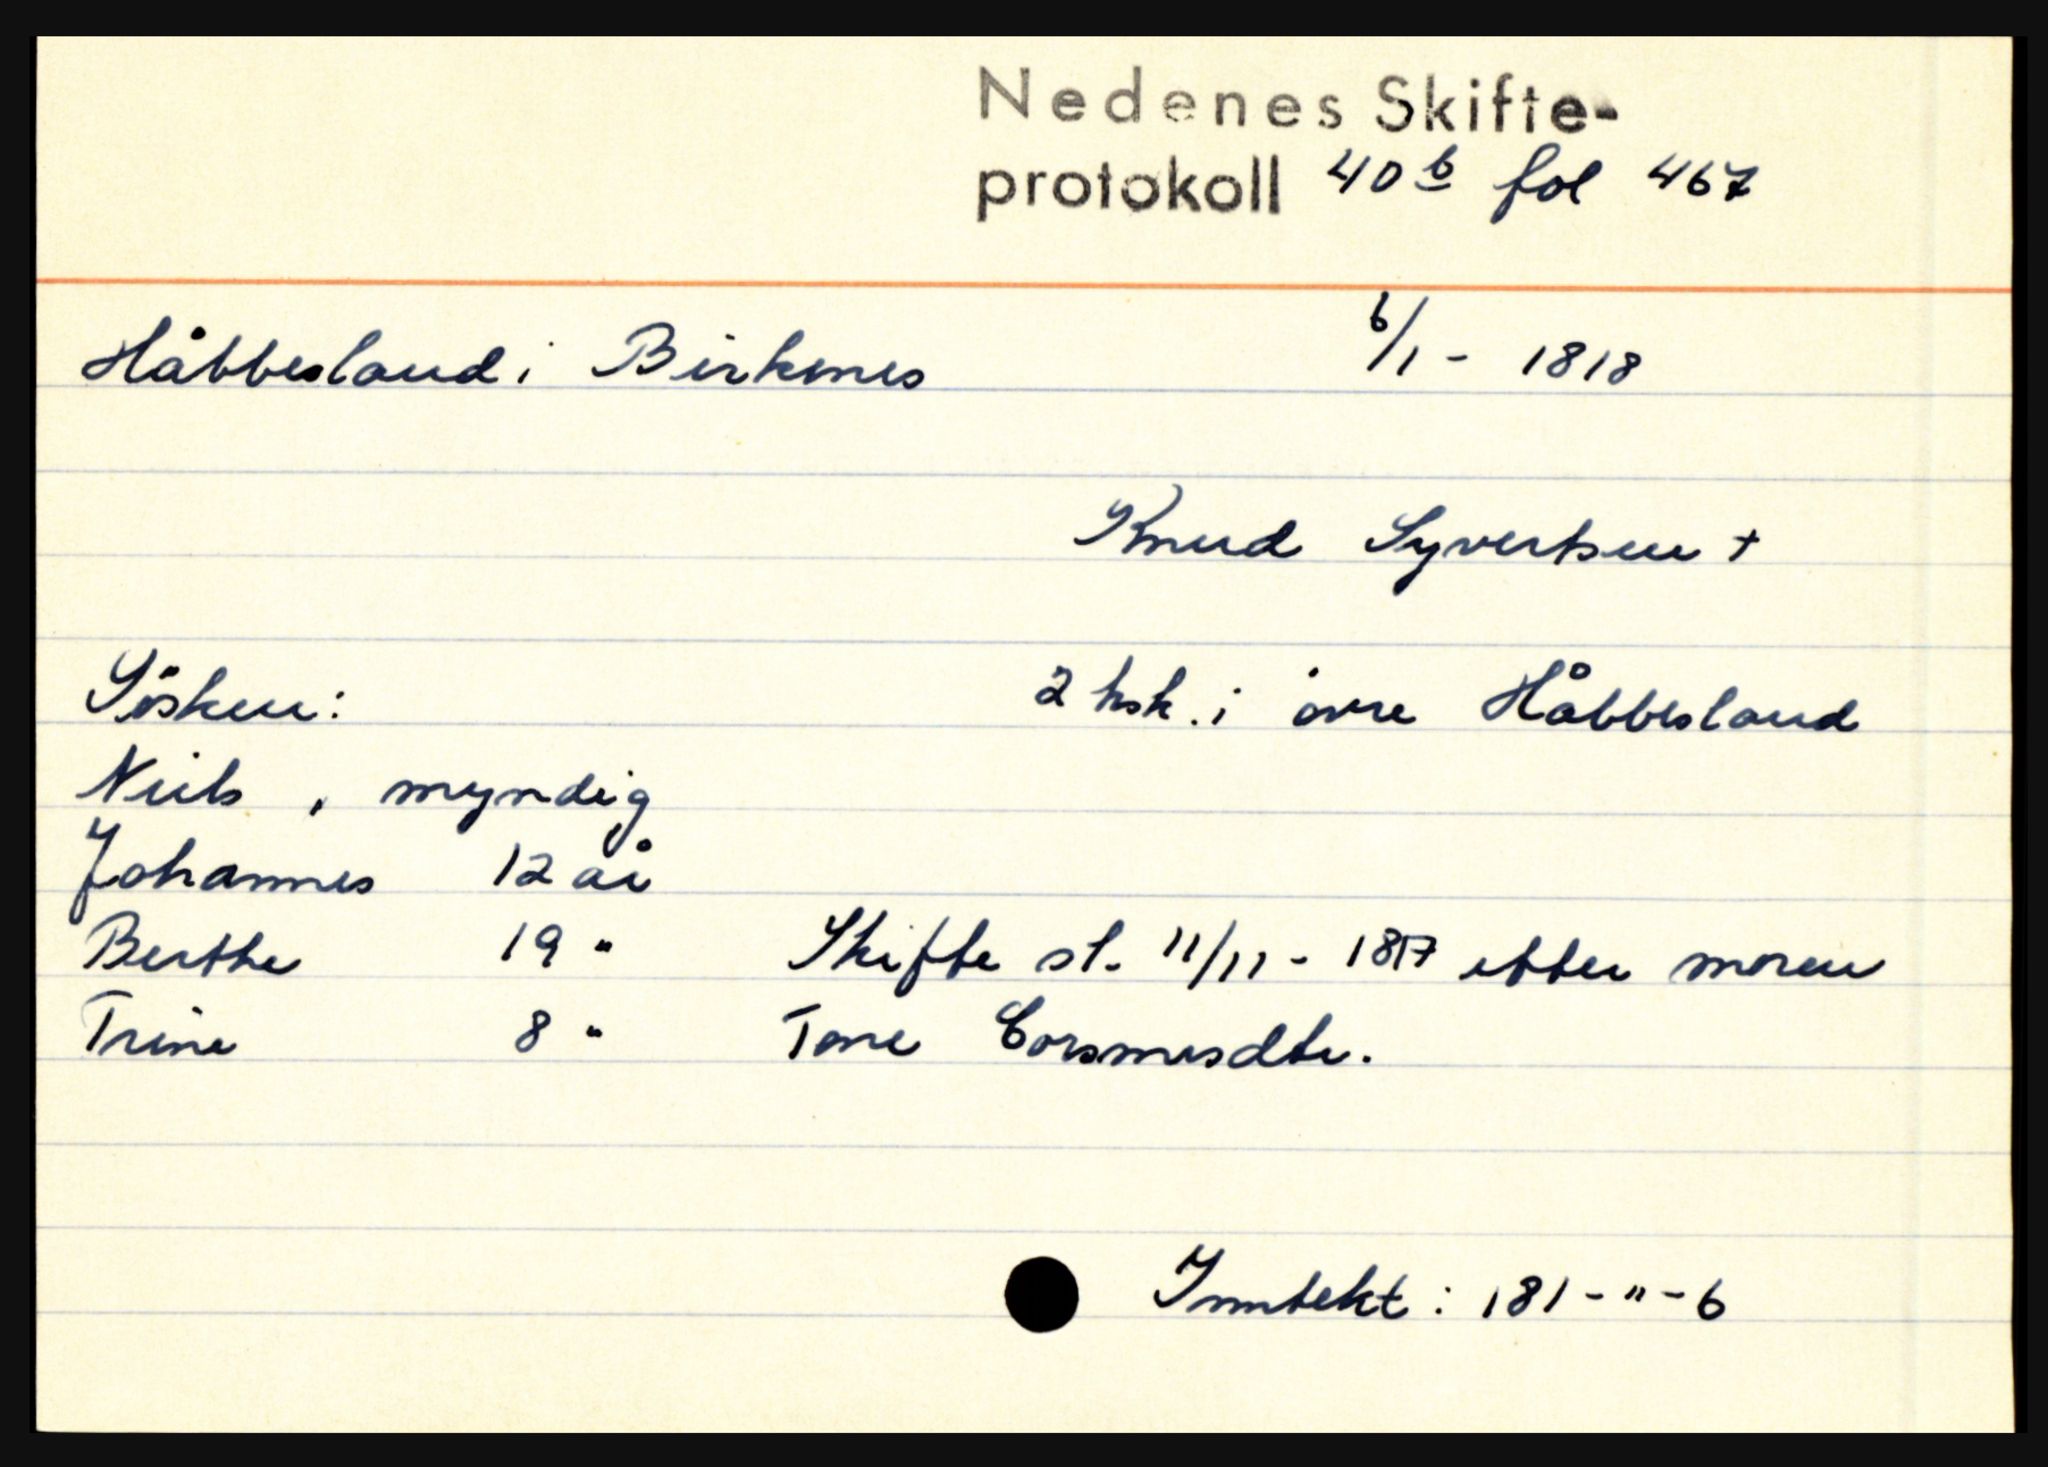 Nedenes Skifte-
protokoll 40 b fol 467
Håbbesland i Birkenes 6/1 - 1818
Knud Syvertsen +
Södsken: 2 hsk. i övre Håbbesland
Niels , myndig
Johannes 12 år
Berthe 19 " Skifte sl. 11/11 - 1817 etter moren
Trine 8 " Tone Corsmesdtr.
Inntekt : 181 - " - 6